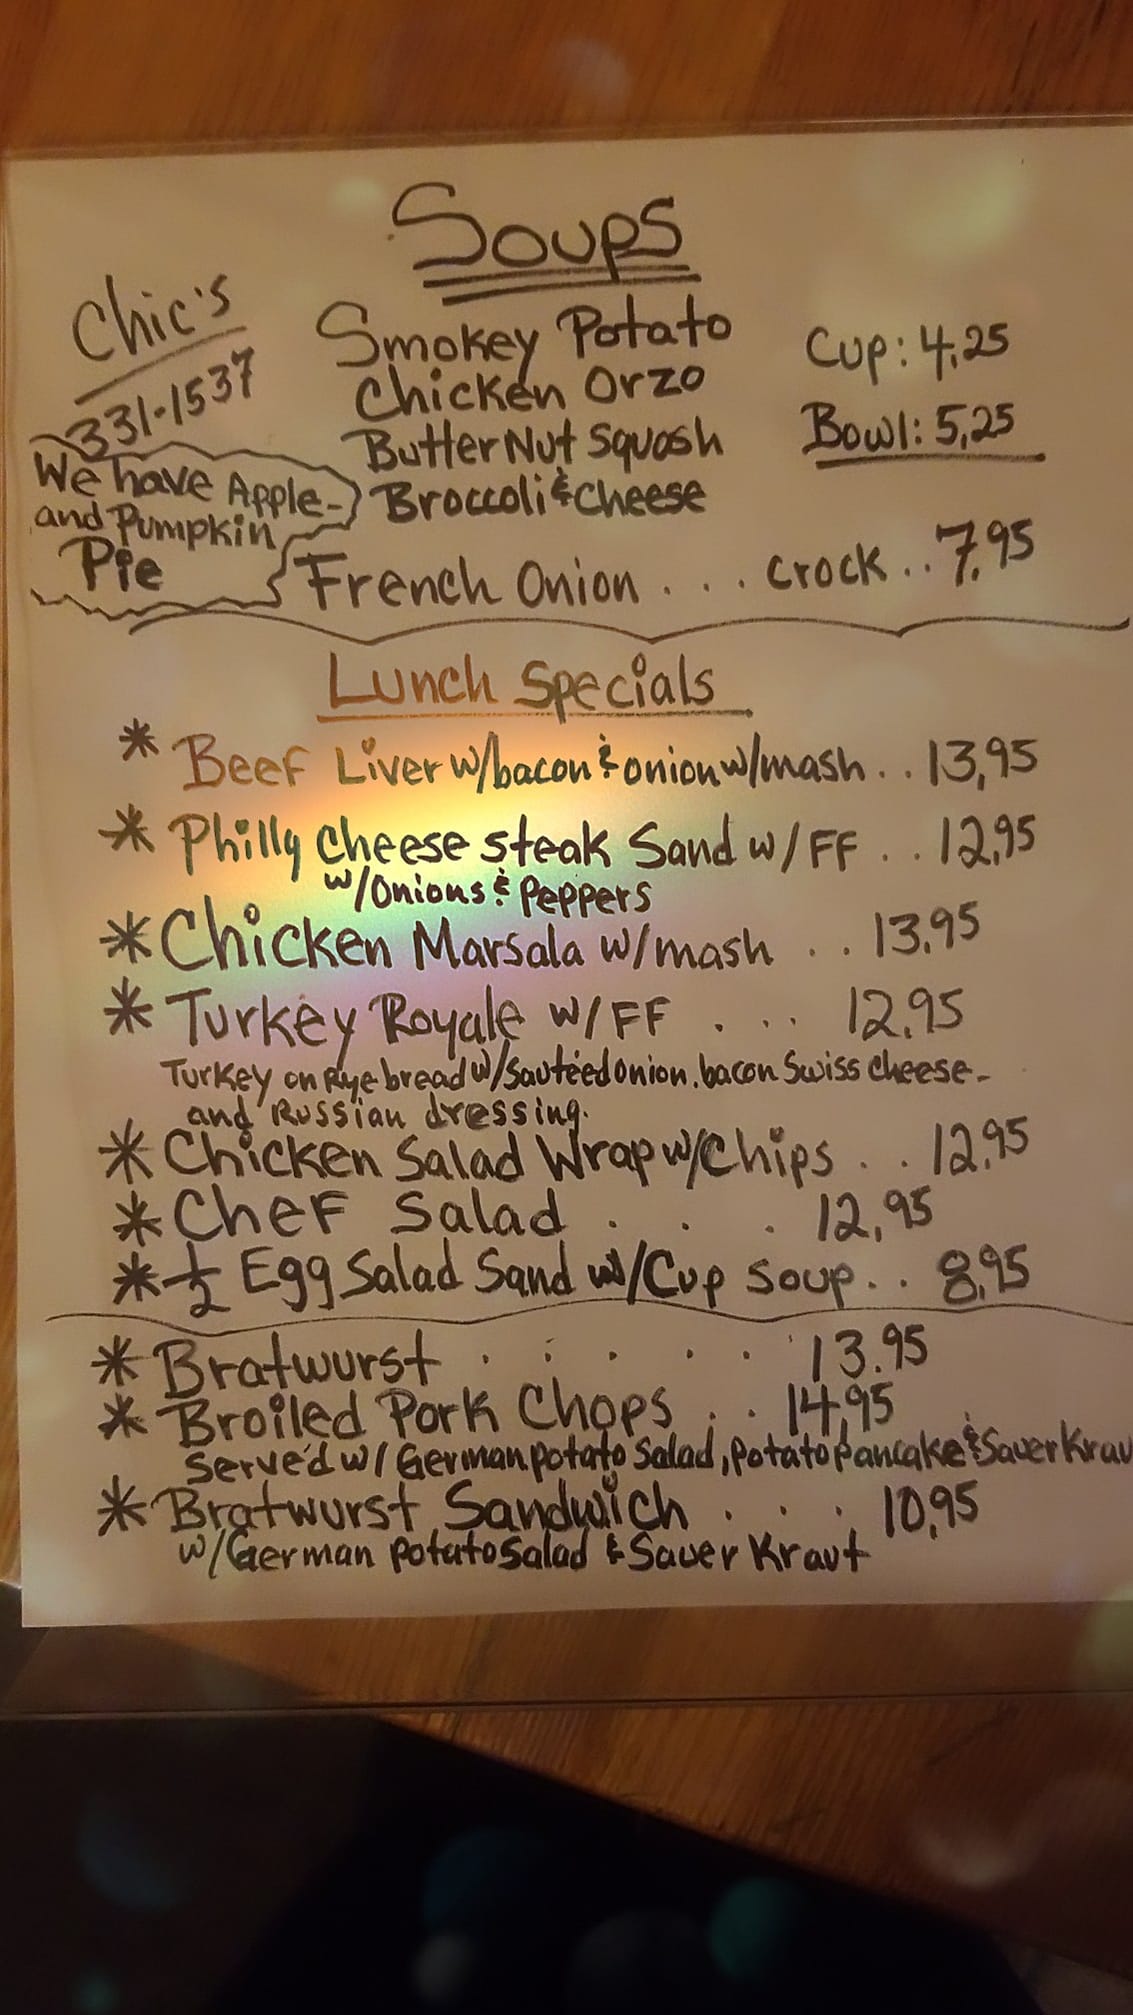 Soups
Chic's
331-1537
We have Apple-
and Pumpkin
Pie
Smokey Potato
Chicken Orzo
Butter Nut Squash
Broccoli & Cheese
Cup: 4.25
Bowl: 5.25
French Onion . . . crock . . 7.95
Lunch Specials
* Beef Liver w/bacon & onion w/mash . . 13.95
* Philly cheese steak Sand w/ FF . . 12.95
w/Onions & Peppers
* Chicken Marsala w/mash . . 13.95
* Turkey Royale w/ FF . . . . 12.95
Turkey on Rye bread w/sautéed onion, bacon Swiss cheese-
and Russian dressing.
* Chicken Salad Wrap w/Chips . . 12.95
* Chef Salad . . . 12.95
* ½ Egg Salad Sand w/Cup soup . . 8.95
* Bratwurst . . . . . 13.95
* Broiled Pork Chops . . 14.95
served w/ German potato salad, potato pancake & Sauer Krau
* Bratwurst Sandwich . . . 10.95
w/German potato salad & Sauer Kraut